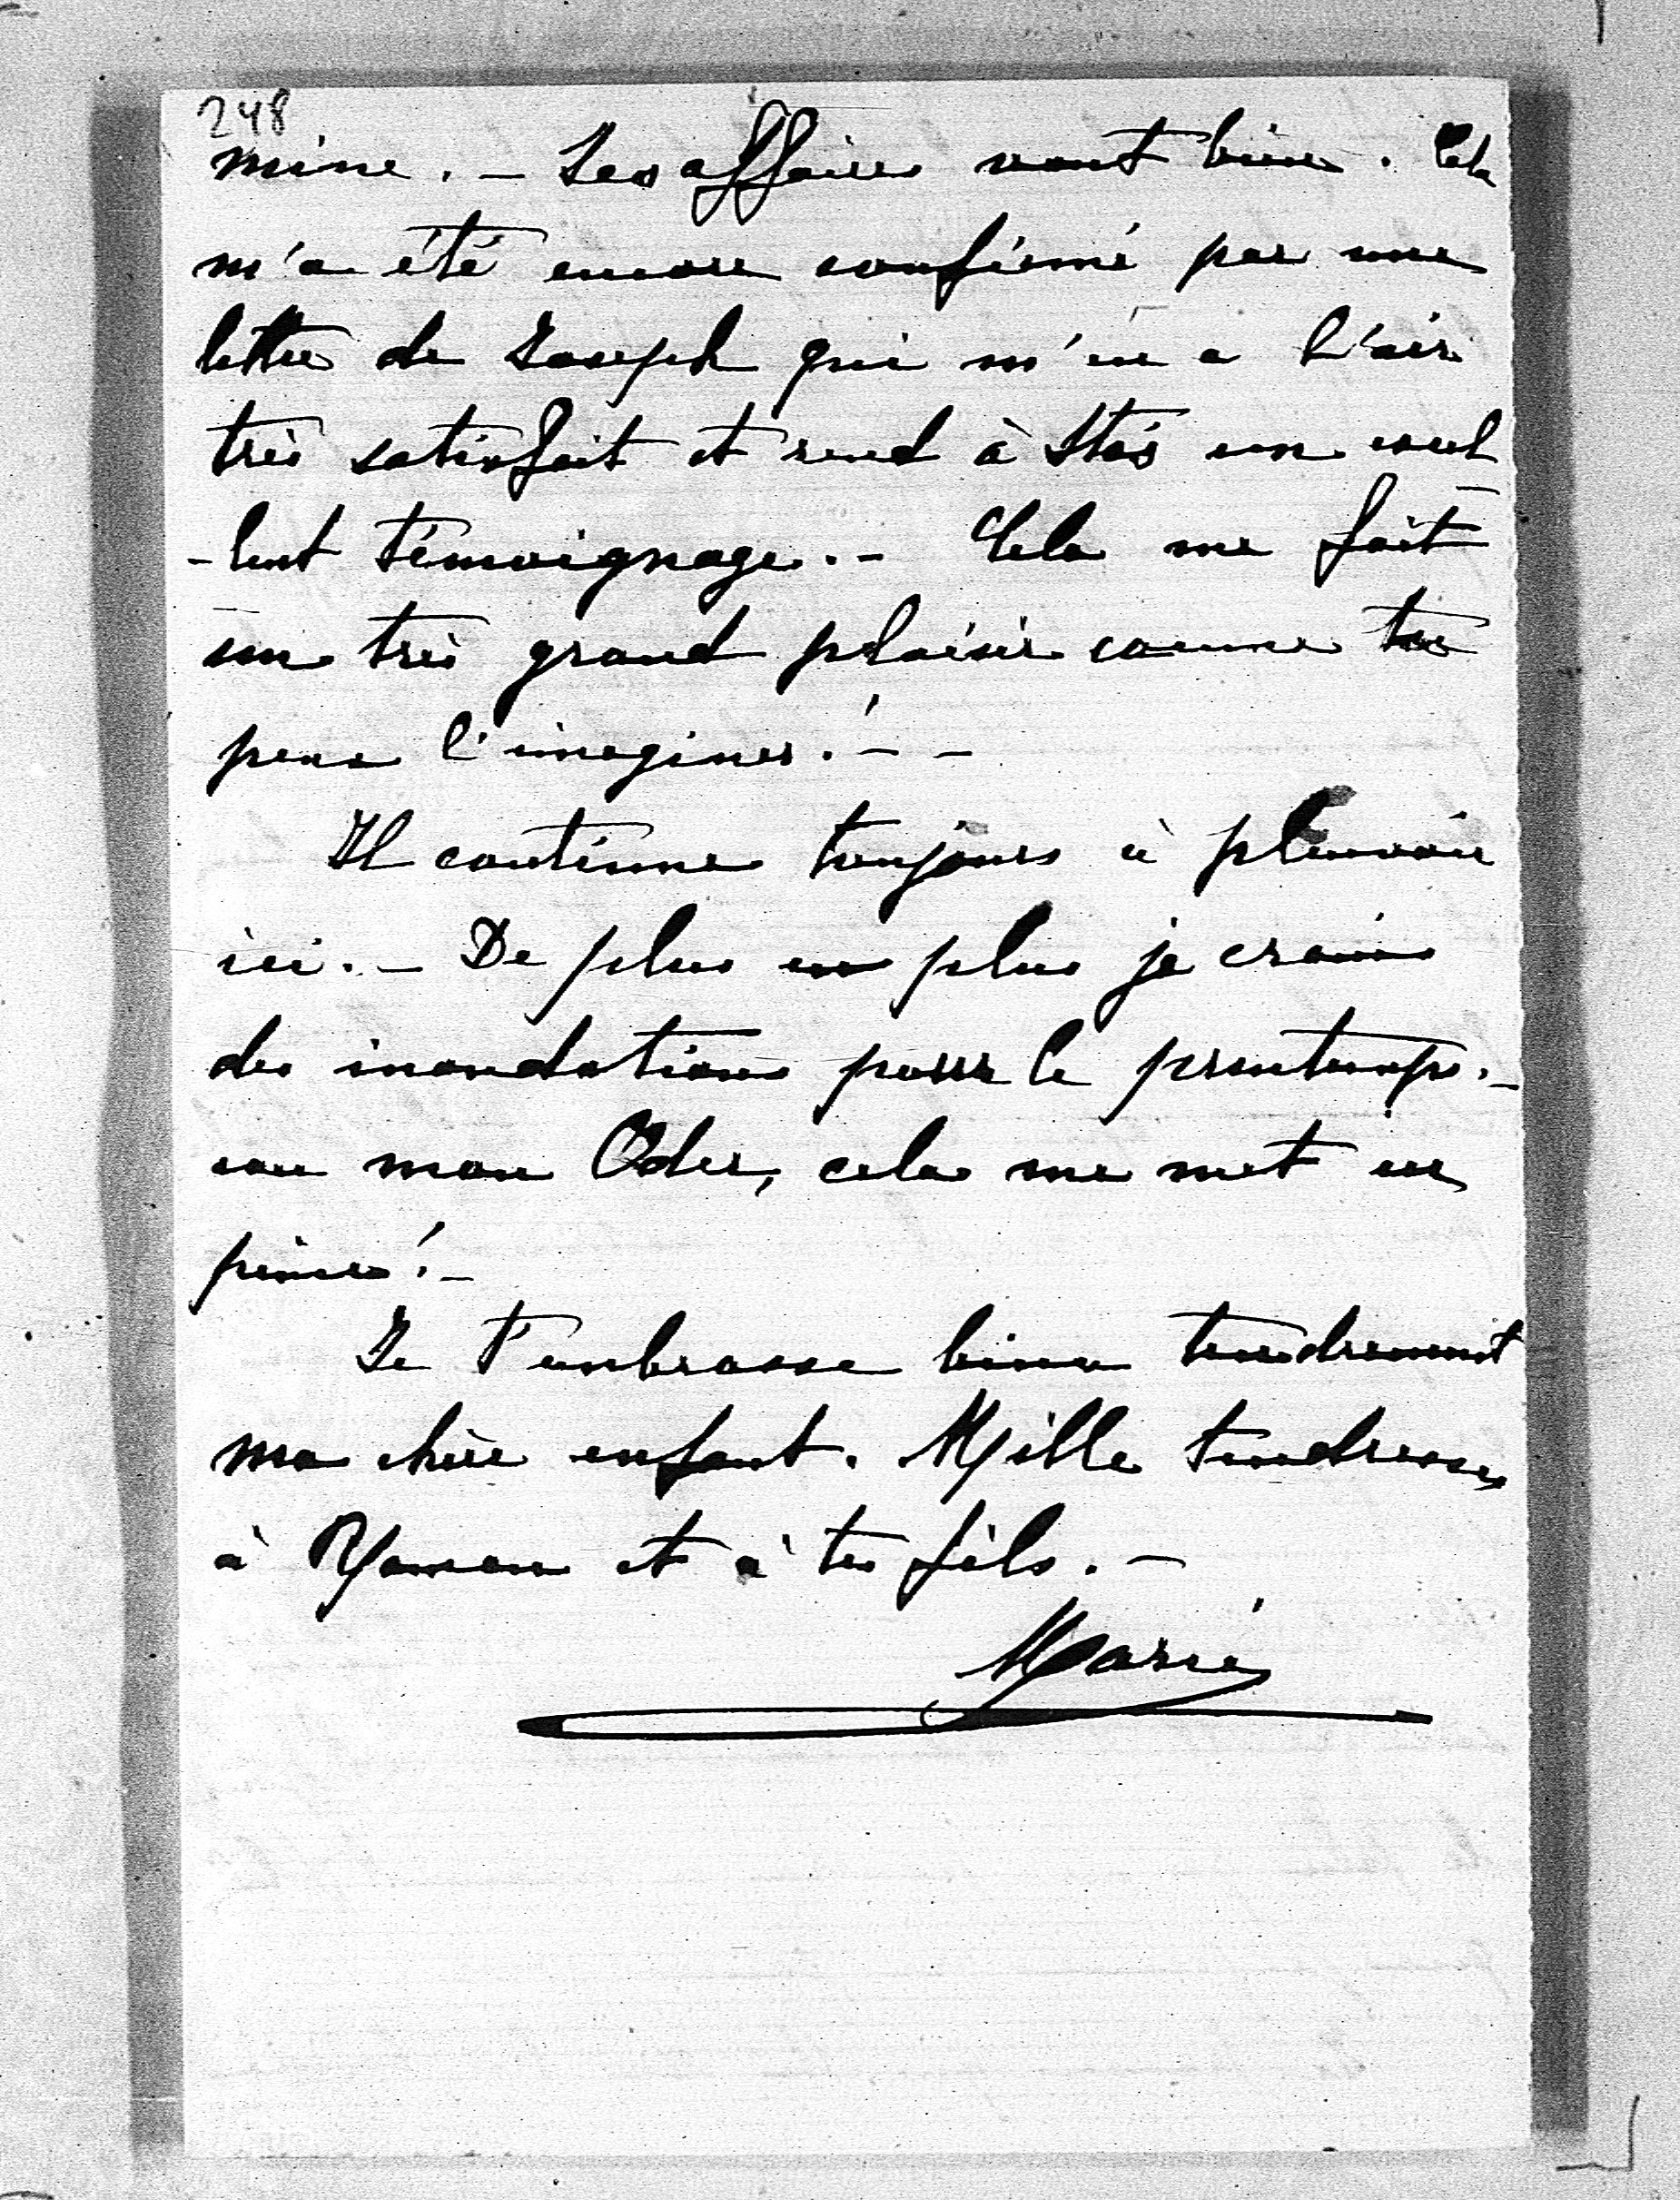 248
mine. - Les affaires vont bien. Cela
m'a été encore confirmé par une
lettre de Joseph qui m'en a l'air
très satisfait et rend à Stas un excel
-lent témoignage. - Cela me fait
un très grand plaisir comme tu
peux l'imaginer! - -
Il continue toujours à pleuvoir
ici. - De plus en plus je crains
des inondations pour le printemps. -
mon Oder, cela me met en
peine! -
Je t'embrasse bien tendrement
ma chère enfant. Mille tendresses
à et à tes fils. -
Marie